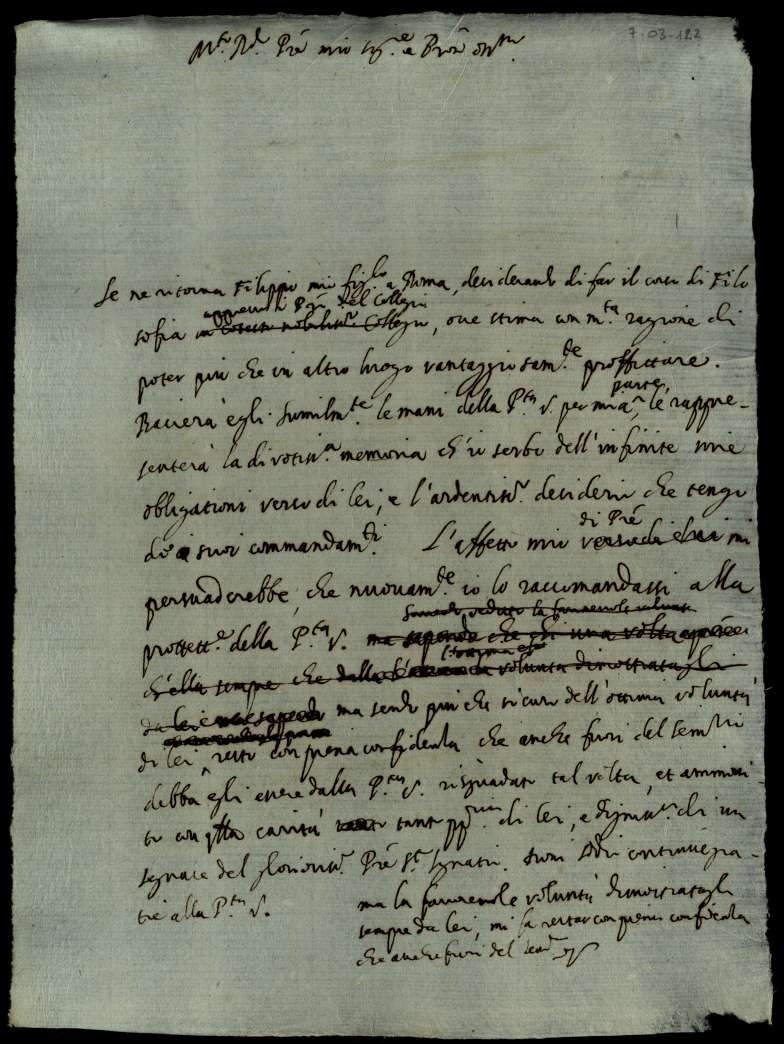 7-03-123
M.to R.do P.re mio Sig.re e P.rone oss.mo
Se ne ritorna Filippo mio fig.lo a Roma, desiderando di far il corso di Filo
appresso i P.ri del Collegio
sofia in cotesto nobiliss.o Collegio, ove stima con m.ta ragione di
poter più che in altro luogo vantaggiosam.te proffittare.
parte,
Bacierà egli humilm.te le mani della P.tà V. per mia le rappre-
senterà la divotiss.a memoria ch'io serbo dell'infinite mie
obligationi verso di lei, e l'ardentiss.o desiderio che tengo
di Pre
de suoi commandam.ti. L'affetto mio verso di lui mi
persuaderebbe, che nuovam.te io lo raccomandassi alla
la favorevole volontà
prottett.ne della P.tà V. ma sapendo che una volta
ch'ella sempre che dalla la volontà dimostratagli
da lei ma sendo più che sicuro dell'ottima volontà
di lei, resto con piena confidenza che anche fuori del sem.rio
debba egli essere dalla P.tà V. risguardato tal volta, et ammoni-
to con q.lla carità tanto pp.ria di lei, e digniss.a di un
seguace del glorioss.o P.re S.t Ignatio. Iddio continue gra-
tie alla P.tà V.
ma la favorevole volontà dimostratagli
sempre da lei, mi fa restar con piena confidenza
che anche fuori del sem.